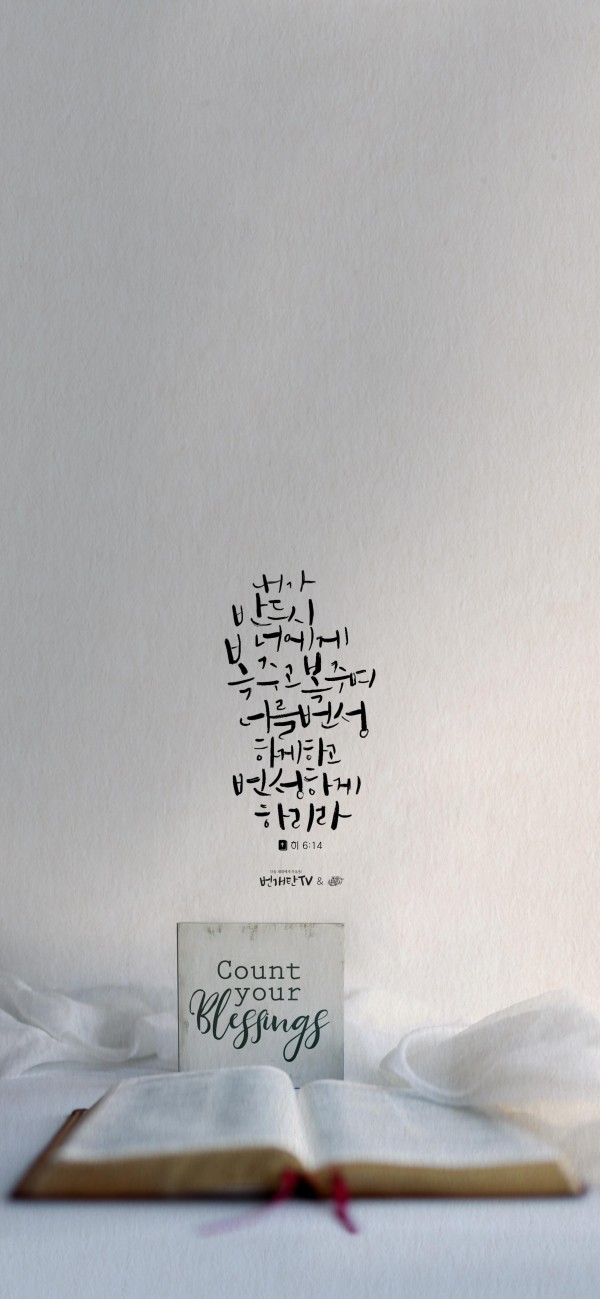 내가
반드시
너에게
복 주고 복 주며
너를 번성
하게 하고
번성하게
하리라
히 6:14
번개탄TV &
Count
your
Blessings